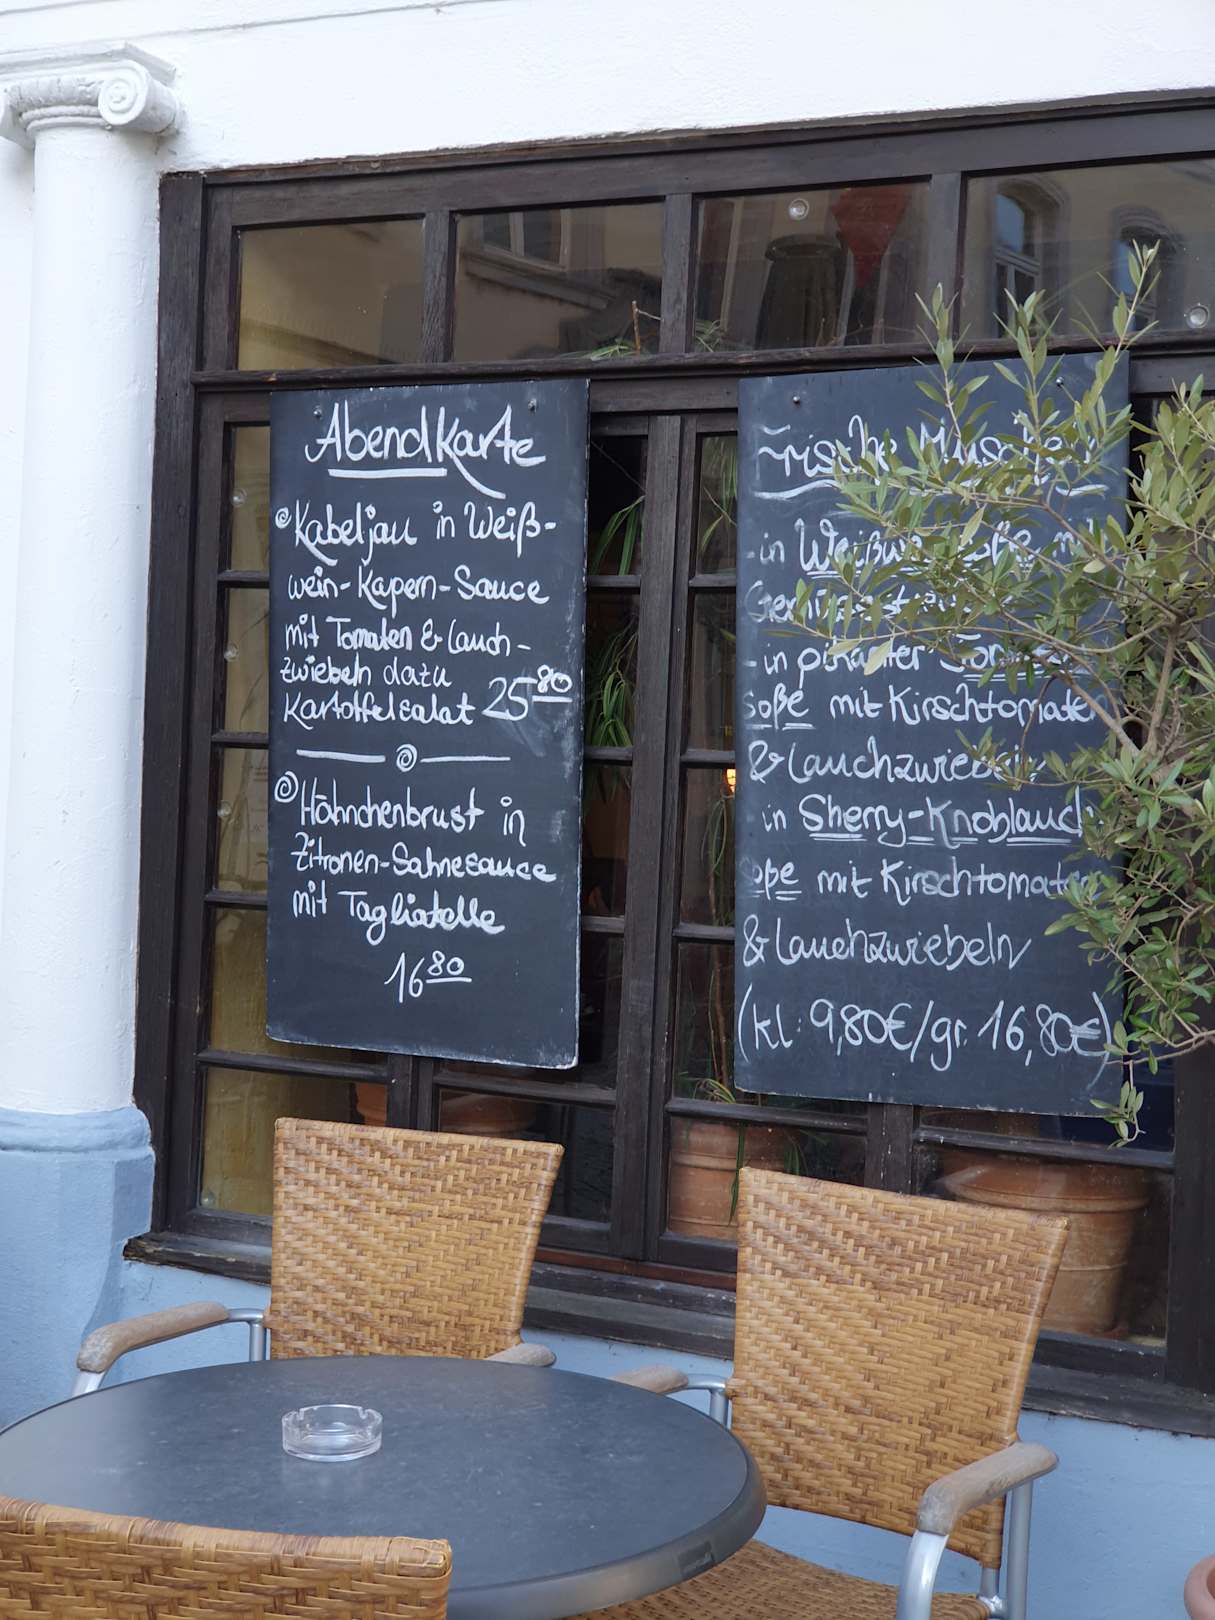 Abendkarte
Kabeljau in Weiß-
wein-Kapern-Sauce
mit Tomaten & Lauch-
zwiebeln dazu
Kartoffelsalat 25 80
Hähnchenbrust in
Zitronen-Sahnesauce
mit Tagliatelle
16 80
Frische Muscheln
- in
- in pikanter
Soße mit Kirschtomaten
& Lauchzwiebeln
in Sherry-Knoblauch
mit Kirschtomaten
& Lauchzwiebeln
(kl. 9,80€/gr. 16,80€)